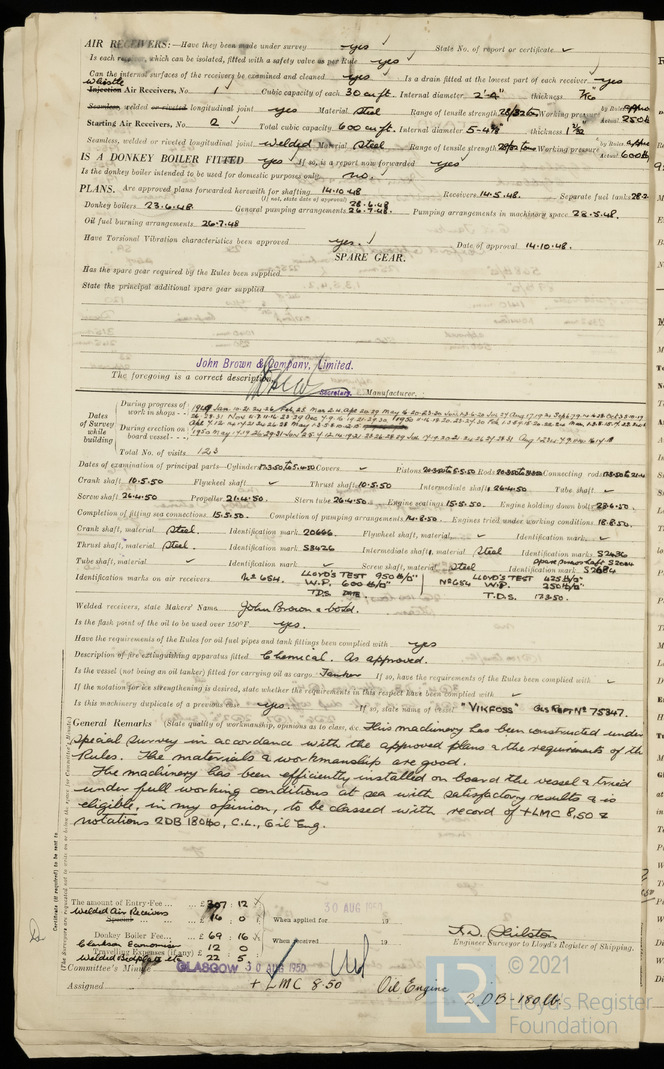 AIR RECEIVERS:—Have they been made under survey yes ✓ State No. of report or certificate ✓
Is each receiver, which can be isolated, fitted with a safety valve as per Rule yes ✓
Can the internal surfaces of the receivers be examined and cleaned yes ✓ Is a drain fitted at the lowest part of each receiver yes
Whistle
Injection Air Receivers, No. 1 ✓ Cubic capacity of each 30 cu ft. Internal diameter 2'-4" thickness 7/16"
Seamless, welded or riveted longitudinal joint yes Material Steel Range of tensile strength 28/32 tons Working pressure by Rules Actual 250 lb
Starting Air Receivers, No. 2 ✓ Total cubic capacity 600 cu ft. Internal diameter thickness
Seamless, welded or riveted longitudinal joint welded Material Steel Range of tensile strength Working pressure by Rules Actual 600 lb
IS A DONKEY BOILER FITTED yes ✓ If so, is a report now forwarded yes ✓
Is the donkey boiler intended to be used for domestic purposes only no. ✓
PLANS. Are approved plans forwarded herewith for shafting 14.10.48 Receivers 14.5.48. Separate fuel tanks
(If not, state date of approval)
Donkey boilers 23.6.48. General pumping arrangements 28.6.48 26.7.48. Pumping arrangements in machinery space 28.5.48.
Oil fuel burning arrangements 26.7.48
Have Torsional Vibration characteristics been approved yes. ✓ Date of approval 14.10.48.
SPARE GEAR.
Has the spare gear required by the Rules been supplied
State the principal additional spare gear supplied
John Brown & Company, Limited.
The foregoing is a correct description,
Secretary. Manufacturer.
Dates of Survey while building
During progress of work in shops - -
During erection on board vessel - - -
Total No. of visits 123
Dates of examination of principal parts—Cylinders Covers ✓ Pistons Rods Connecting rods
Crank shaft 10.5.50 Flywheel shaft ✓ Thrust shaft 10.5.50 Intermediate shafts 26.4.50 Tube shaft ✓
Screw shaft 26.4.50 Propeller 21.4.50 Stern tube 26.4.50 Engine seatings 15.5.50. Engine holding down bolts 23.6.50.
Completion of fitting sea connections 15.5.50 Completion of pumping arrangements 14.8.50. Engines tried under working conditions 18.8.50.
Crank shaft, material Steel. Identification mark 20666. Flywheel shaft, material ✓ Identification mark ✓
Thrust shaft, material Steel. Identification mark S3426 Intermediate shafts, material Steel Identification marks S2436
Tube shaft, material ✓ Identification mark ✓ Screw shaft, material Steel Identification mark S2684
Identification marks on air receivers No. 654. LLOYD'S TEST 950 lb/□" W.P. 600 lb/□" T.D.S. No 654 LLOYD'S TEST 425 lb/□" W.P. 250 lb/□" T.D.S. 17.3.50.
Welded receivers, state Makers' Name John Brown & Co Ltd.
Is the flash point of the oil to be used over 150°F. yes.
Have the requirements of the Rules for oil fuel pipes and tank fittings been complied with yes
Description of fire extinguishing apparatus fitted Chemical. As approved.
Is the vessel (not being an oil tanker) fitted for carrying oil as cargo Tanker If so, have the requirements of the Rules been complied with ✓
If the notation for ice strengthening is desired, state whether the requirements in this respect have been complied with ✓
Is this machinery duplicate of a previous case yes If so, state name of vessel "VIKFOSS" Gls Rept No 75347.
General Remarks (State quality of workmanship, opinions as to class, &c. This machinery has been constructed under
special survey in accordance with the approved plans & the requirements of the
Rules. The materials & workmanship are good.
The machinery has been efficiently installed on board the vessel & tried
under full working conditions at sea with satisfactory results & is
eligible, in my opinion, to be classed with record of +LMC 8,50 &
notations 2DB 180 lbs, C.L., Oil Eng.
Certificate (if required) to be sent to
(The Surveyors are requested not to write on or below the space for Committee's Minute.)
The amount of Entry Fee ... £ 307 : 12
Welded Air Receivers
Special £ 16 : 0 When applied for 30 AUG 1950 19
Donkey Boiler Fee ... £ 69 : 16
Clarkson Economiser 12 : 0 When received 19
Travelling Expenses (if any) £
Welded Bedplate etc 22 5
Engineer Surveyor to Lloyd's Register of Shipping.
Committee's Minute GLASGOW 30 AUG 1950
Assigned + LMC 8.50 Oil Engine 2 DB - 180 lb.
LR
© 2021
Lloyd's Register
Foundation